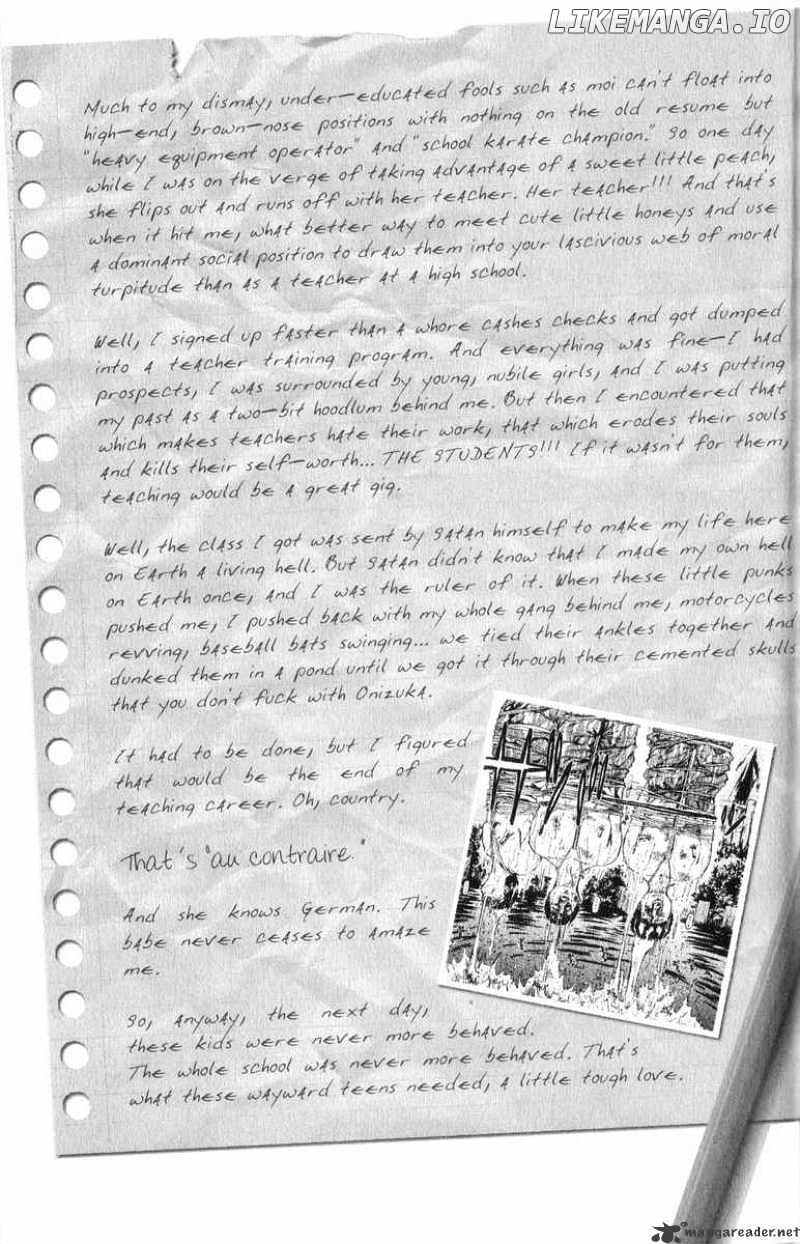 LIKEMANGA.IO
Much to my dismay, under-educated fools such as moi can't float into
high-end, brown-nose positions with nothing on the old resume but
"heavy equipment operator" and "school karate champion." So one day
while I was on the verge of taking advantage of a sweet little peach,
she flips out and runs off with her teacher. Her teacher!!! And that's
when it hit me, what better way to meet cute little honeys and use
a dominant social position to draw them into your lascivious web of moral
turpitude than as a teacher at a high school.
Well, I signed up faster than a whore cashes checks and got dumped
into a teacher training program. And everything was fine-I had
prospects, I was surrounded by young, nubile girls, and I was putting
my past as a two-bit hoodlum behind me. But then I encountered that
which makes teachers hate their work, that which erodes their souls
and kills their self-worth... THE STUDENTS!!! If it wasn't for them,
teaching would be a great gig.
Well, the class I got was sent by Satan himself to make my life here
on Earth a living hell. But Satan didn't know that I made my own hell
on Earth once, and I was the ruler of it. When these little punks
pushed me, I pushed back with my whole gang behind me, motorcycles
revving, baseball bats swinging... we tied their ankles together and
dunked them in a pond until we got it through their cemented skulls
that you don't fuck with Onizuka.
It had to be done, but I figured
that would be the end of my
teaching career. Oh, country.
That's "au contraire."
And she knows German. This
babe never ceases to amaze
me.
So, anyway, the next day,
these kids were never more behaved.
The whole school was never more behaved. That's
what these wayward teens needed, a little tough love.
mangareader.net